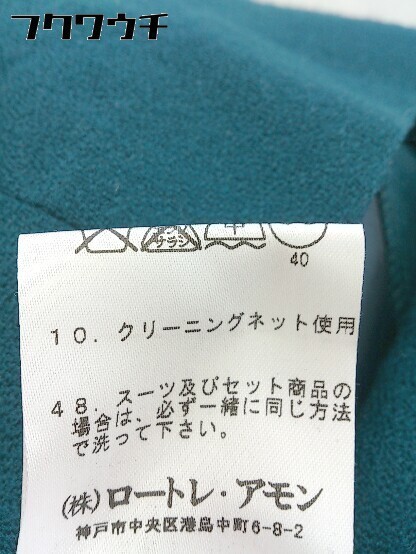 フクワウチ
エンソ
サラシ
中
40
10. クリーニングネット使用
48. スーツ及びセット商品の
場合は、必ず一緒に同じ方法
で洗って下さい。
(株)ロートレ・アモン
神戸市中央区港島中町6-8-2